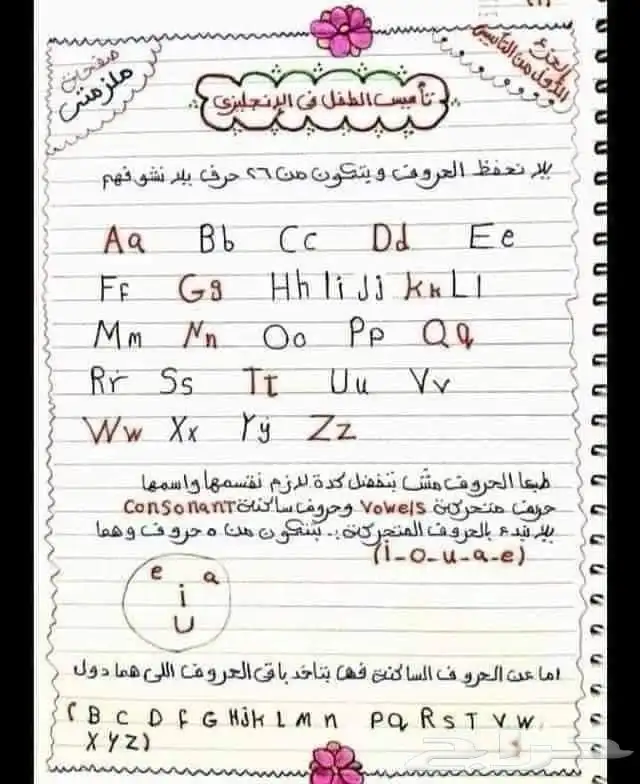 الجزء
الاول من التأسيس
صفحات
ملزمتى
تأسيس الطفل فى الإنجليزى
يلا نحفظ الحروف ويتكون من ٢٦ حرف يلا نشوفهم
Aa Bb Cc Dd Ee
Ff Gg Hh Ii Jj Kk Ll
Mm Nn Oo Pp Qq
Rr Ss Tt Uu Vv
Ww Xx Yy Zz
طبعا الحروف مش بتفضل كدة لازم نقسمها واسمها
حروف متحركة Vowels وحروف ساكنة Consonant
يلا نبدء بالحروف المتحركة :. بتتكون من ٥ حروف وهما
(i-o-u-a-e)
e a
i
U
اما عن الحروف الساكنة فها بتاخد باقى الحروف اللى هما دول
( B C D F G H j k L M n P Q R S T V W
X Y Z )
حراج